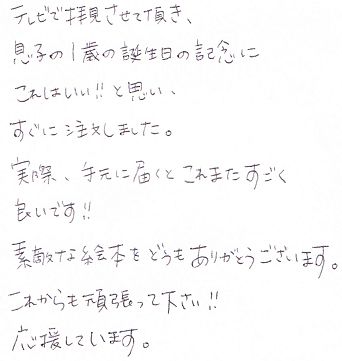 テレビで拝見させて頂き、
息子の1歳の誕生日の記念に
これはいい!!と思い、
すぐに注文しました。
実際、手元に届くとこれまたすごく
良いです!!
素敵な絵本をどうもありがとうございます。
これからも頑張って下さい!!
応援しています。